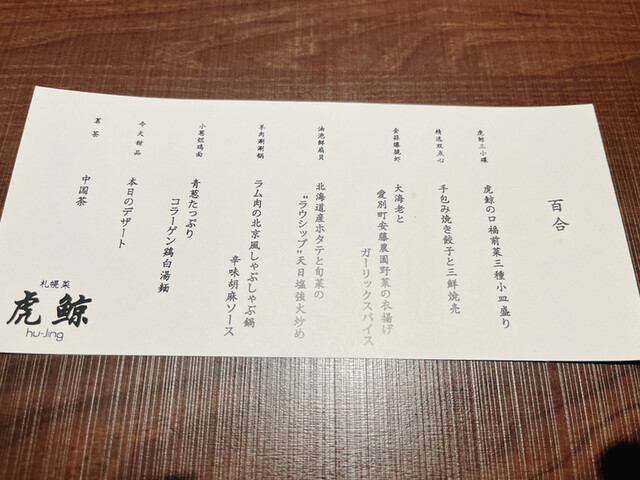 百合
虎鯨三小碟
虎鯨の口福前菜三種小皿盛り
精选双点心
手包み焼き餃子と三鮮焼売
金蒜爆脆虾
大海老と
愛別町安藤農園野菜の衣揚げ
ガーリックスパイス
油泡鮮扇贝
北海道産ホタテと旬菜の
"ラウシップ"天日塩強火炒め
羊肉涮涮锅
ラム肉の北京風しゃぶしゃぶ鍋
辛味胡麻ソース
小葱鸡鸡面
青葱たっぷり
コラーゲン鶏白湯麺
今天甜品
本日のデザート
茗茶
中国茶
札幌菜
虎鯨
hu-Jing